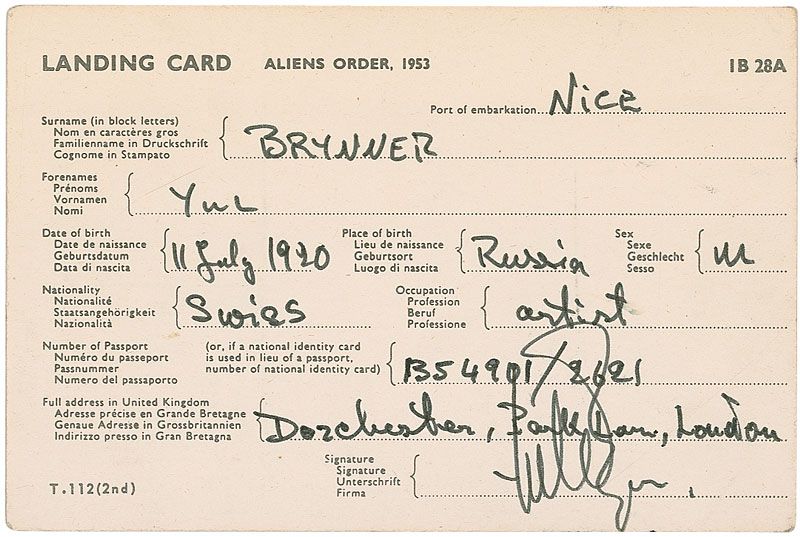 LANDING CARD ALIENS ORDER, 1953 IB 28A
Port of embarkation Nice
Surname (in block letters)
Nom en caractères gros
Familienname in Druckschrift
Cognome in Stampato
BRYNNER
Forenames
Prénoms
Vornamen
Nomi
Yul
Date of birth
Date de naissance
Geburtsdatum
Data di nascita
11 July 1920
Place of birth
Lieu de naissance
Geburtsort
Luogo di nascita
Russia
Sex
Sexe
Geschlecht
Sesso
M
Nationality
Nationalité
Staatsangehörigkeit
Nazionalità
Swiss
Occupation
Profession
Beruf
Professione
artist
Number of Passport
Numéro du passeport
Passnummer
Numero del passaporto
(or, if a national identity card
is used in lieu of a passport,
number of national identity card)
B54901/2621
Full address in United Kingdom
Adresse précise en Grande Bretagne
Genaue Adresse in Grossbritannien
Indirizzo presso in Gran Bretagna
Dorchester, Park Lane, London
Signature
Signature
Unterschrift
Firma
T.112(2nd)